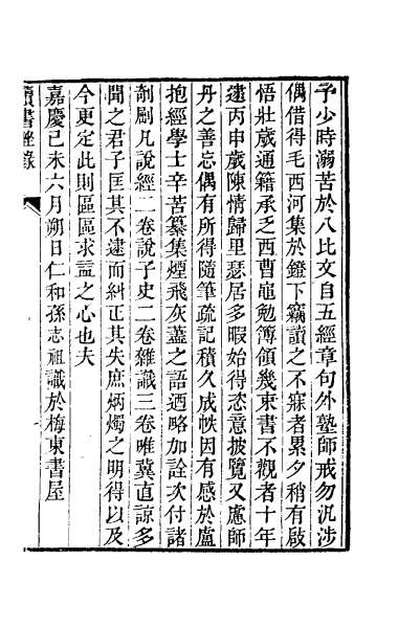 予少時溺苦於八比文自五經章句外塾師戒勿汎涉
偶借得毛西河集於鐙下竊讀之不寐者累夕稍有啟
悟壯歲通籍承乏西曹黽勉簿領幾束書不觀者十年
逮丙申歲陳情歸里瑟居多暇始得恣意披覽又慮師
丹之善忘偶有所得隨筆疏記積久成帙因有感於盧
抱經學士辛苦纂集煙飛灰蓋之語迺略加詮次付諸
剞劂凡說經二卷說子史二卷雜識三卷唯冀直諒多
聞之君子匡其不逮而糾正其失庶炳燭之明得以及
今更定此則區區求益之心也夫
嘉慶己未六月朔日仁和孫志祖識於梅東書屋
讀書脞錄